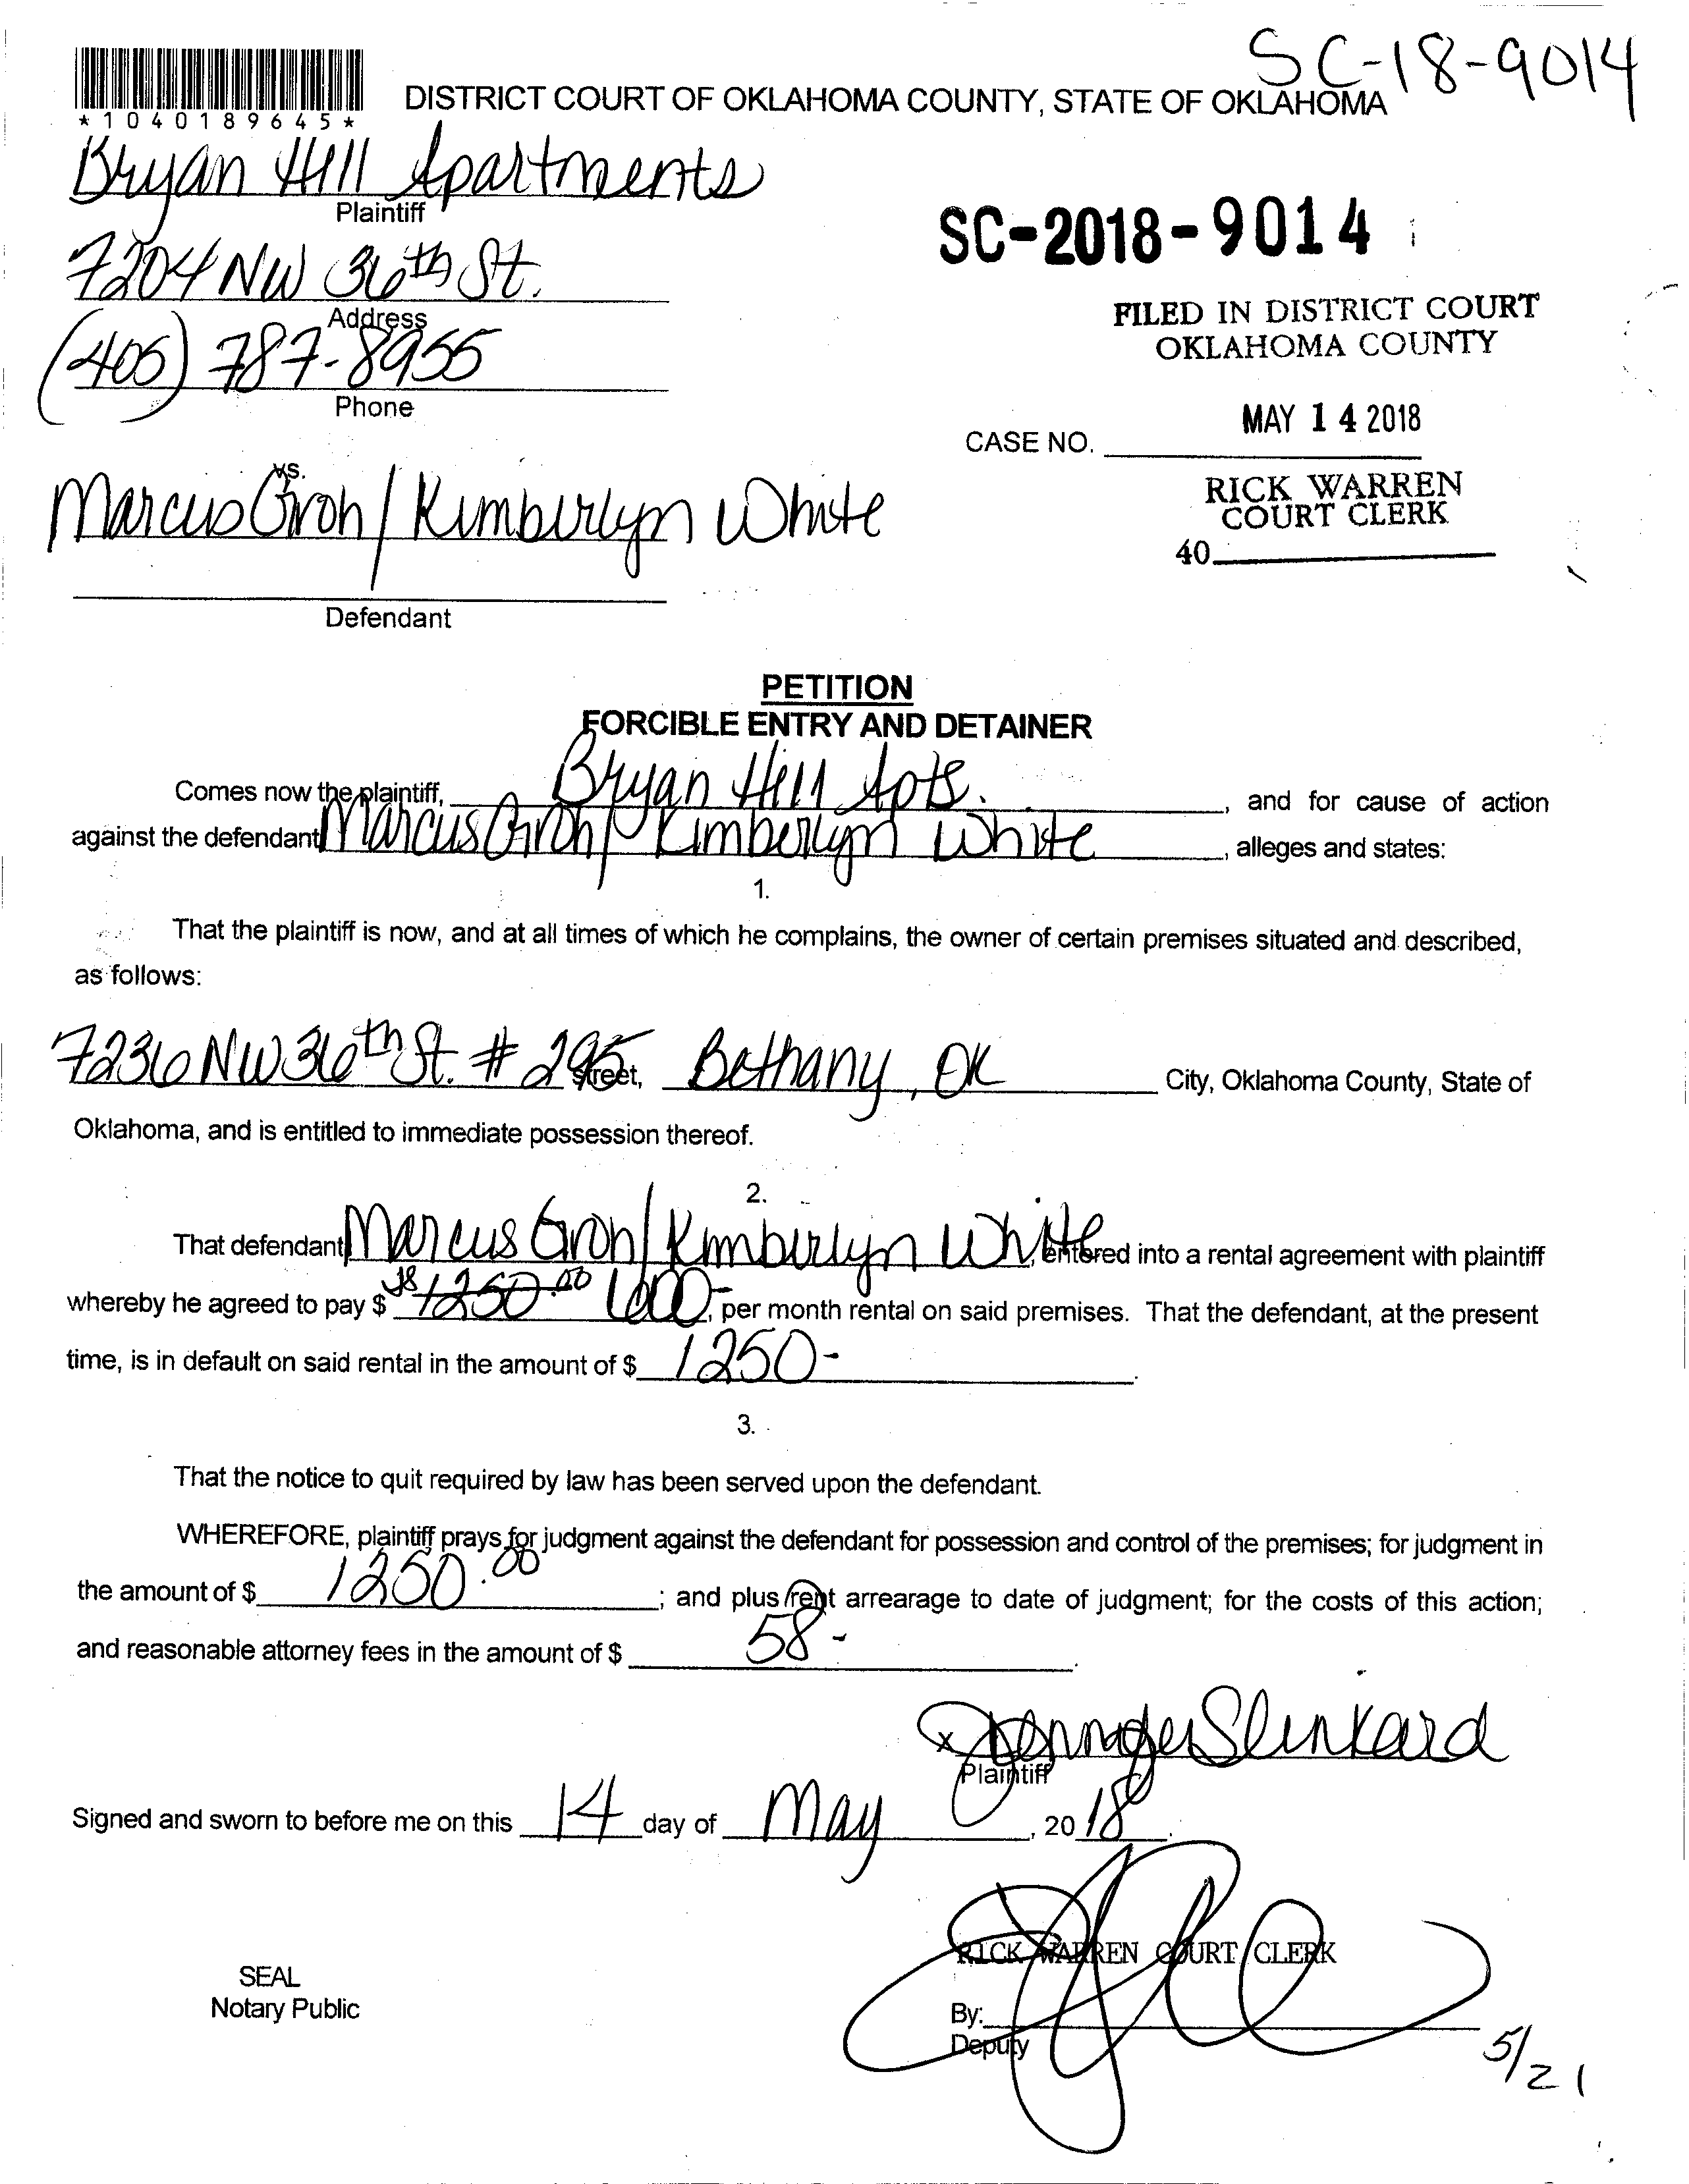 SC-18-9014
*1040189645*
DISTRICT COURT OF OKLAHOMA COUNTY, STATE OF OKLAHOMA
Bryan Hill Apartments
Plaintiff
SC-2018-9014
7204 NW 36th St.
Address
FILED IN DISTRICT COURT
OKLAHOMA COUNTY
(405) 787-8955
Phone
MAY 14 2018
CASE NO.
vs.
RICK WARREN
COURT CLERK
Marcus Groh / Kimberlyn White
40
Defendant
PETITION
FORCIBLE ENTRY AND DETAINER
Comes now the plaintiff, Bryan Hill Apts. , and for cause of action
against the defendant Marcus Groh / Kimberlyn White , alleges and states:
1.
That the plaintiff is now, and at all times of which he complains, the owner of certain premises situated and described,
as follows:
7236 NW 36th St. # 295 street, Bethany, OK City, Oklahoma County, State of
Oklahoma, and is entitled to immediate possession thereof.
2.
That defendant Marcus Groh / Kimberlyn White, entered into a rental agreement with plaintiff
whereby he agreed to pay $ JS 1250.00 600-, per month rental on said premises. That the defendant, at the present
time, is in default on said rental in the amount of $ 1250- .
3.
That the notice to quit required by law has been served upon the defendant.
WHEREFORE, plaintiff prays for judgment against the defendant for possession and control of the premises; for judgment in
the amount of $ 1250.00 ; and plus rent arrearage to date of judgment; for the costs of this action;
and reasonable attorney fees in the amount of $ 58- .
x Jennifer Slinkard
Plaintiff
Signed and sworn to before me on this 14 day of May , 2018.
RICK WARREN COURT CLERK
SEAL
Notary Public
By:
Deputy
5/21